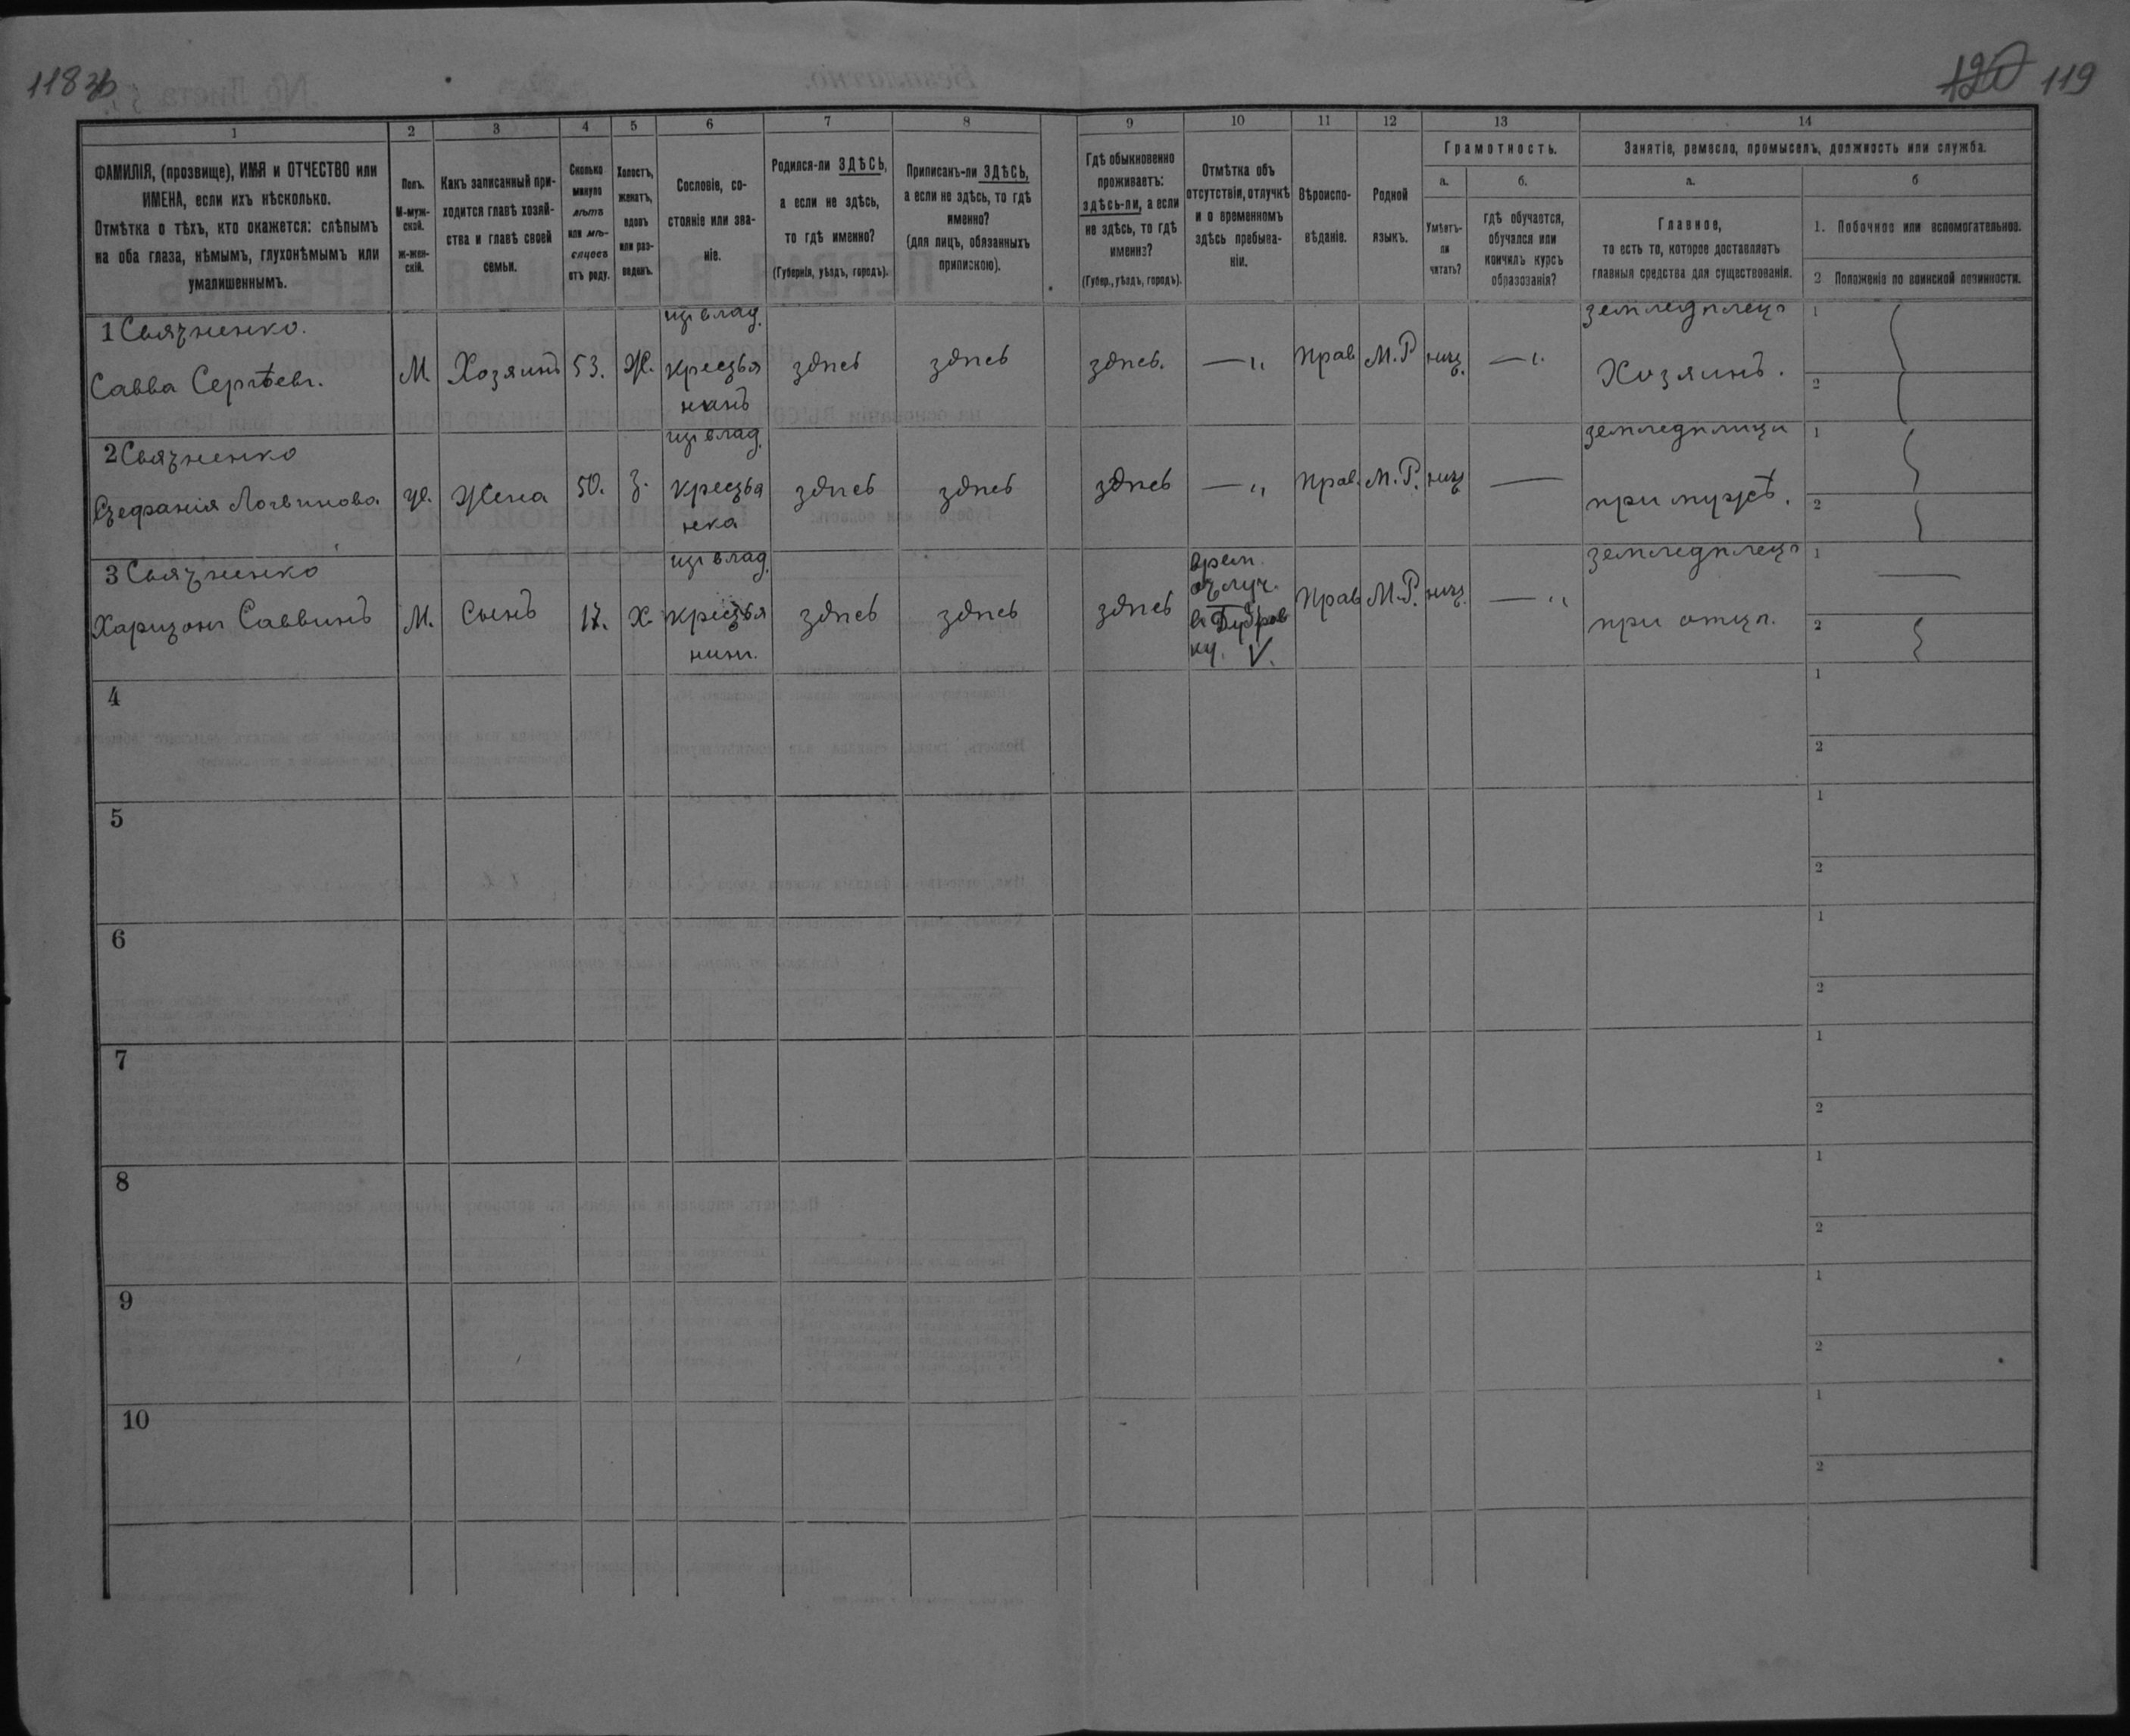 118 зв
120 119
1
2
3
4
5
6
7
8
9
10
11
12
13
14
ФАМИЛІЯ, (прозвище), ИМЯ и ОТЧЕСТВО или
ИМЕНА, если ихъ нѣсколько.
Отмѣтка о тѣхъ, кто окажется: слѣпымъ
на оба глаза, нѣмымъ, глухонѣмымъ или
умалишеннымъ.
Полъ.
М-муж-
ской.
ж-жен-
скій.
Какъ записанный при-
ходится главѣ хозяй-
ства и главѣ своей
семьи.
Сколько
минуло
лѣтъ
или мѣ-
сяцевъ
отъ роду.
Холостъ,
женатъ,
вдовъ
или раз-
веденъ.
Сословіе, со-
стояніе или зва-
ніе.
Родился-ли ЗДѢСЬ,
а если не здѣсь,
то гдѣ именно?
(Губернія, уѣздъ, городъ).
Приписанъ-ли ЗДѢСЬ,
а если не здѣсь, то гдѣ
именно?
(для лицъ, обязанныхъ
припискою).
Гдѣ обыкновенно
проживаетъ:
здѣсь-ли, а если
не здѣсь, то гдѣ
именно?
(Губер., уѣздъ, городъ).
Отмѣтка объ
отсутствіи, отлучкѣ
и о временномъ
здѣсь пребыва-
ніи.
Вѣроиспо-
вѣданіе.
Родной
языкъ.
Грамотность.
а.
Умѣетъ-
ли
читать?
б.
гдѣ обучается,
обучался или
кончилъ курсъ
образованія?
Занятіе, ремесло, промыселъ, должность или служба.
а.
Главное,
то есть то, которое доставляетъ
главныя средства для существованія.
б
1. Побочное или вспомогательное.
2 Положеніе по воинской повинности.
1 Свяртненко.
Савва Сергѣевъ.
М.
Хозяинъ
53.
Ж.
из влад.
крестья
нинъ
здѣсь
здѣсь
здѣсь.
— „
Прав
М.Р
нит.
— „
земледѣлецъ
Хозяинъ.
1
2
2
Стефанія Логвинова
ж.
Жена
50.
З.
из влад.
крестья
нка
здѣсь
здѣсь
здѣсь
— „
Прав.
М.Р.
нит
—
земледѣлица
при мужѣ.
1
2
3
Харитонъ Саввинъ
М.
Сынъ
17.
Х.
из влад.
крестья
нинъ.
здѣсь
здѣсь
здѣсь
врем.
отлуч.
въ Дубров
ку. V.
Прав
М.Р.
нит.
— „
земледѣлецъ
при отцѣ.
1
2
4
1
2
5
1
2
6
1
2
7
1
2
8
1
2
9
1
2
10
1
2